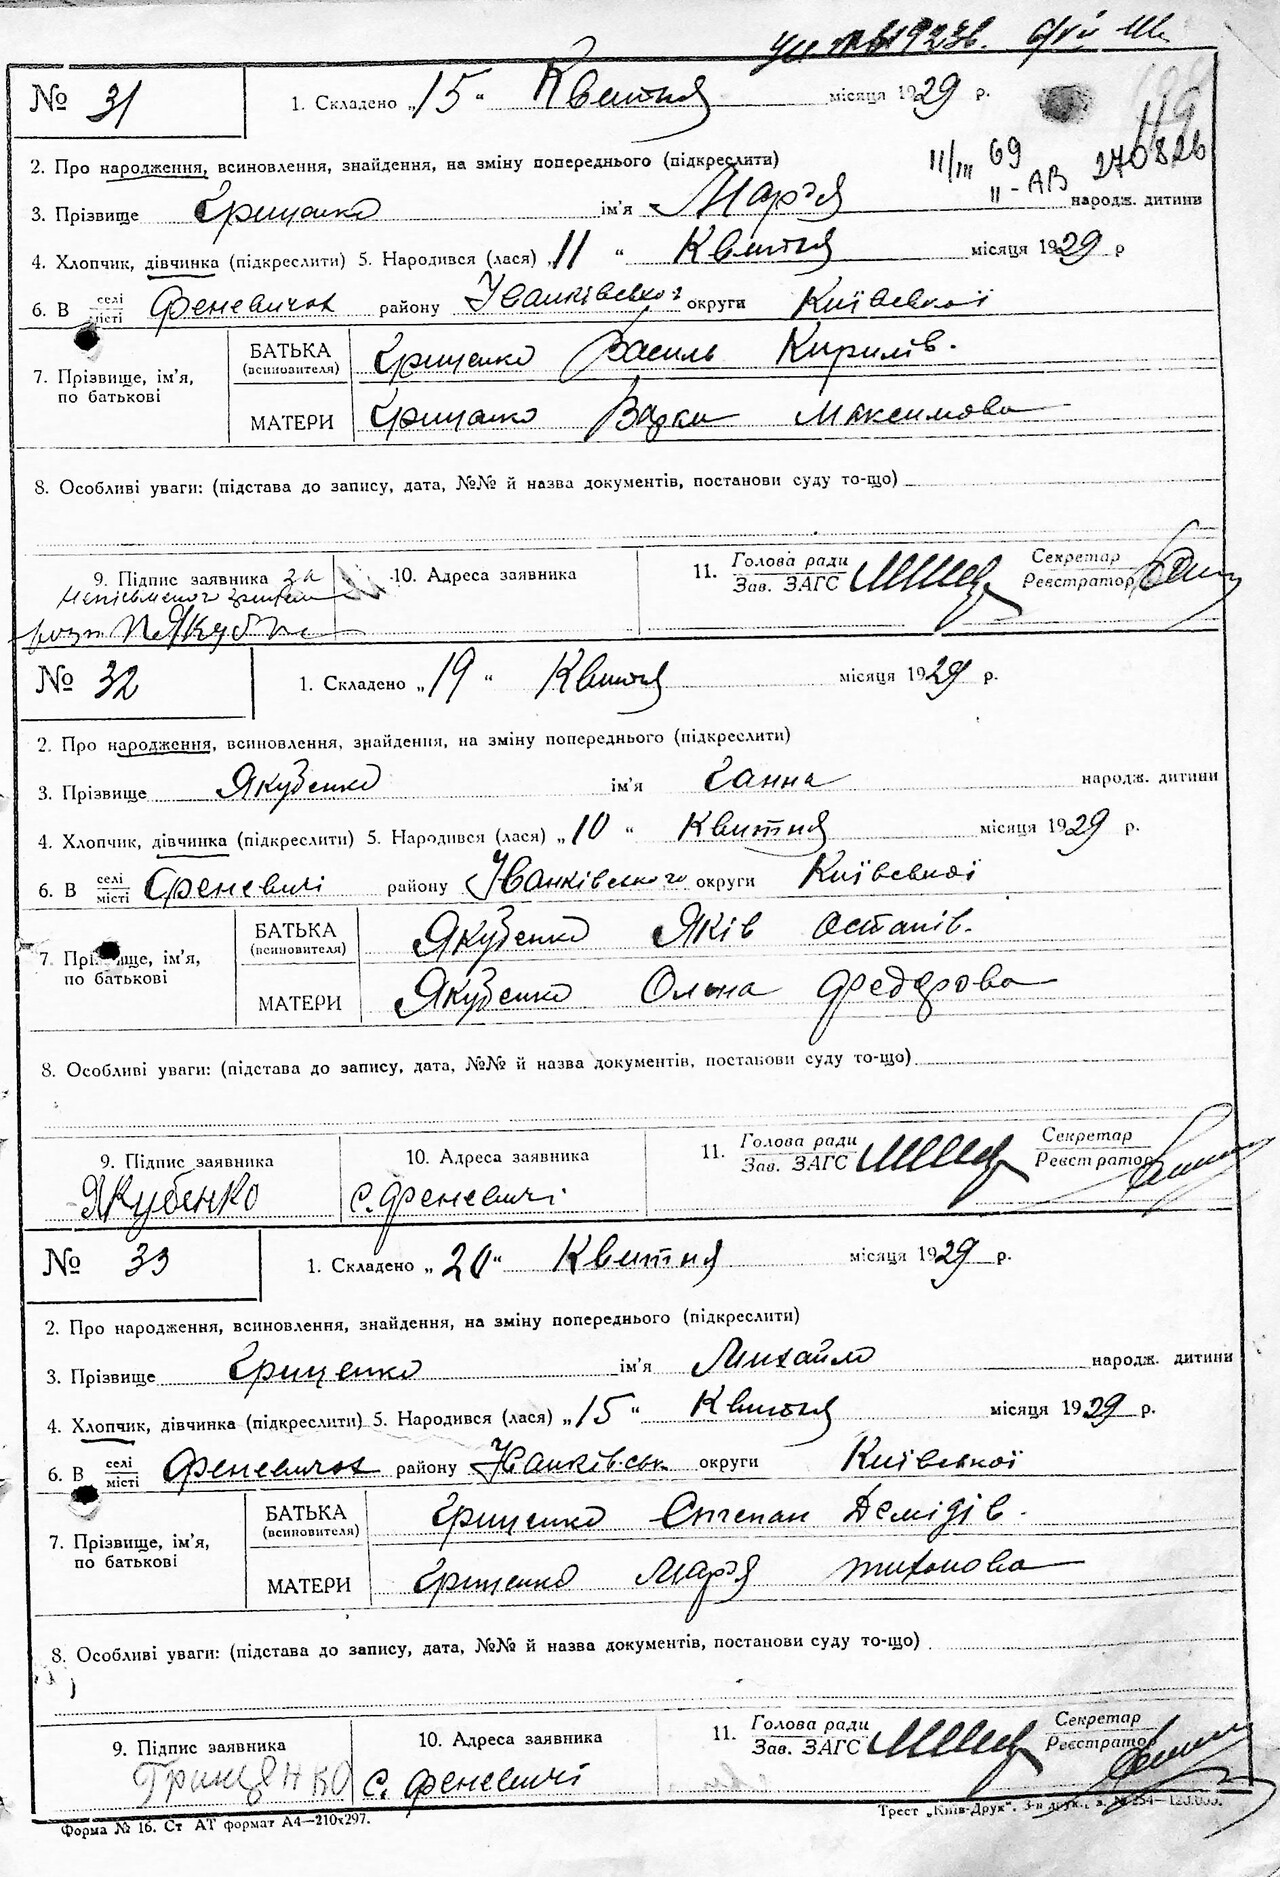 № 31 1. Складено „15“ Квитня місяця 1929 р.
2. Про народження, всиновлення, знайдення, на зміну попереднього (підкреслити)
II/III 69
II-АВ 270826
3. Прізвище Грищенко ім’я Мар’я народж. дитини
4. Хлопчик, дівчинка (підкреслити) 5. Народився (лася) „11“ Квитня місяця 1929 р
6. В селі/місті Феневичах району Іванківського округи Київської
7. Прізвище, ім’я, по батькові
БАТЬКА (всиновителя) Грищенко Василь Кирилів.
МАТЕРИ Грищенко Варка Максимова
8. Особливі уваги: (підстава до запису, дата, №№ й назва документів, постанови суду то-що)
9. Підпис заявника за 10. Адреса заявника 11. Голова ради Зав. ЗАГС Секретар Реєстратор
№ 32 1. Складено „19“ Квитня місяця 1929 р.
2. Про народження, всиновлення, знайдення, на зміну попереднього (підкреслити)
3. Прізвище Якубенко ім’я Ганна народж. дитини
4. Хлопчик, дівчинка (підкреслити) 5. Народився (лася) „10“ Квитня місяця 1929 р.
6. В селі/місті Феневичі району Іванківського округи Київської
7. Прізвище, ім’я, по батькові
БАТЬКА (всиновителя) Якубенко Яків Остапів.
МАТЕРИ Якубенко Ольга Федорова
8. Особливі уваги: (підстава до запису, дата, №№ й назва документів, постанови суду то-що)
9. Підпис заявника 10. Адреса заявника 11. Голова ради Зав. ЗАГС Секретар Реєстратор
Якубенко с. Феневичі
№ 33 1. Складено „20“ Квитня місяця 1929 р.
2. Про народження, всиновлення, знайдення, на зміну попереднього (підкреслити)
3. Прізвище Грищенко ім’я Михайло народж. дитини
4. Хлопчик, дівчинка (підкреслити) 5. Народився (лася) „15“ Квитня місяця 1929 р.
6. В селі/місті Феневичах району Іванківськ округи Київської
7. Прізвище, ім’я, по батькові
БАТЬКА (всиновителя) Грищенко Степан Демідів.
МАТЕРИ Грищенко Мар’я Тихонова
8. Особливі уваги: (підстава до запису, дата, №№ й назва документів, постанови суду то-що)
9. Підпис заявника 10. Адреса заявника 11. Голова ради Зав. ЗАГС Секретар Реєстратор
Грищянко с. Феневичі
Форма № 16. Ст АТ формат А4—210х297. Трест „Київ-Друк“.